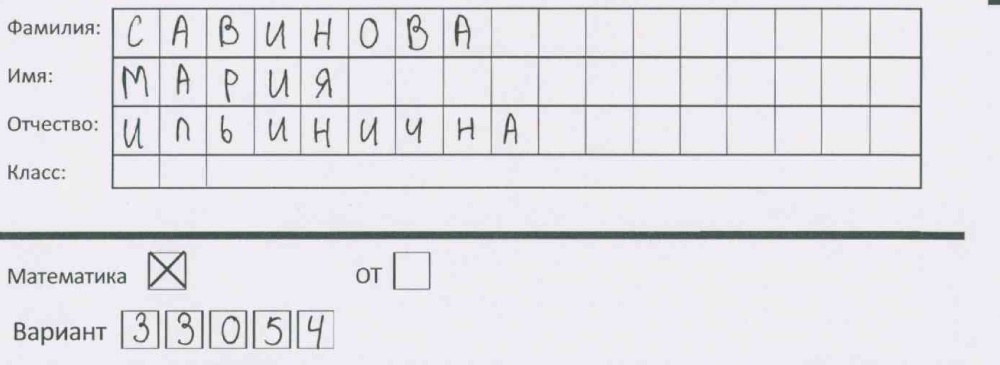 Фамилия: САВИНОВА
Имя: МАРИЯ
Отчество: ИЛЬИНИЧНА
Класс:
Математика ☒ ОТ ☐
Вариант 33054